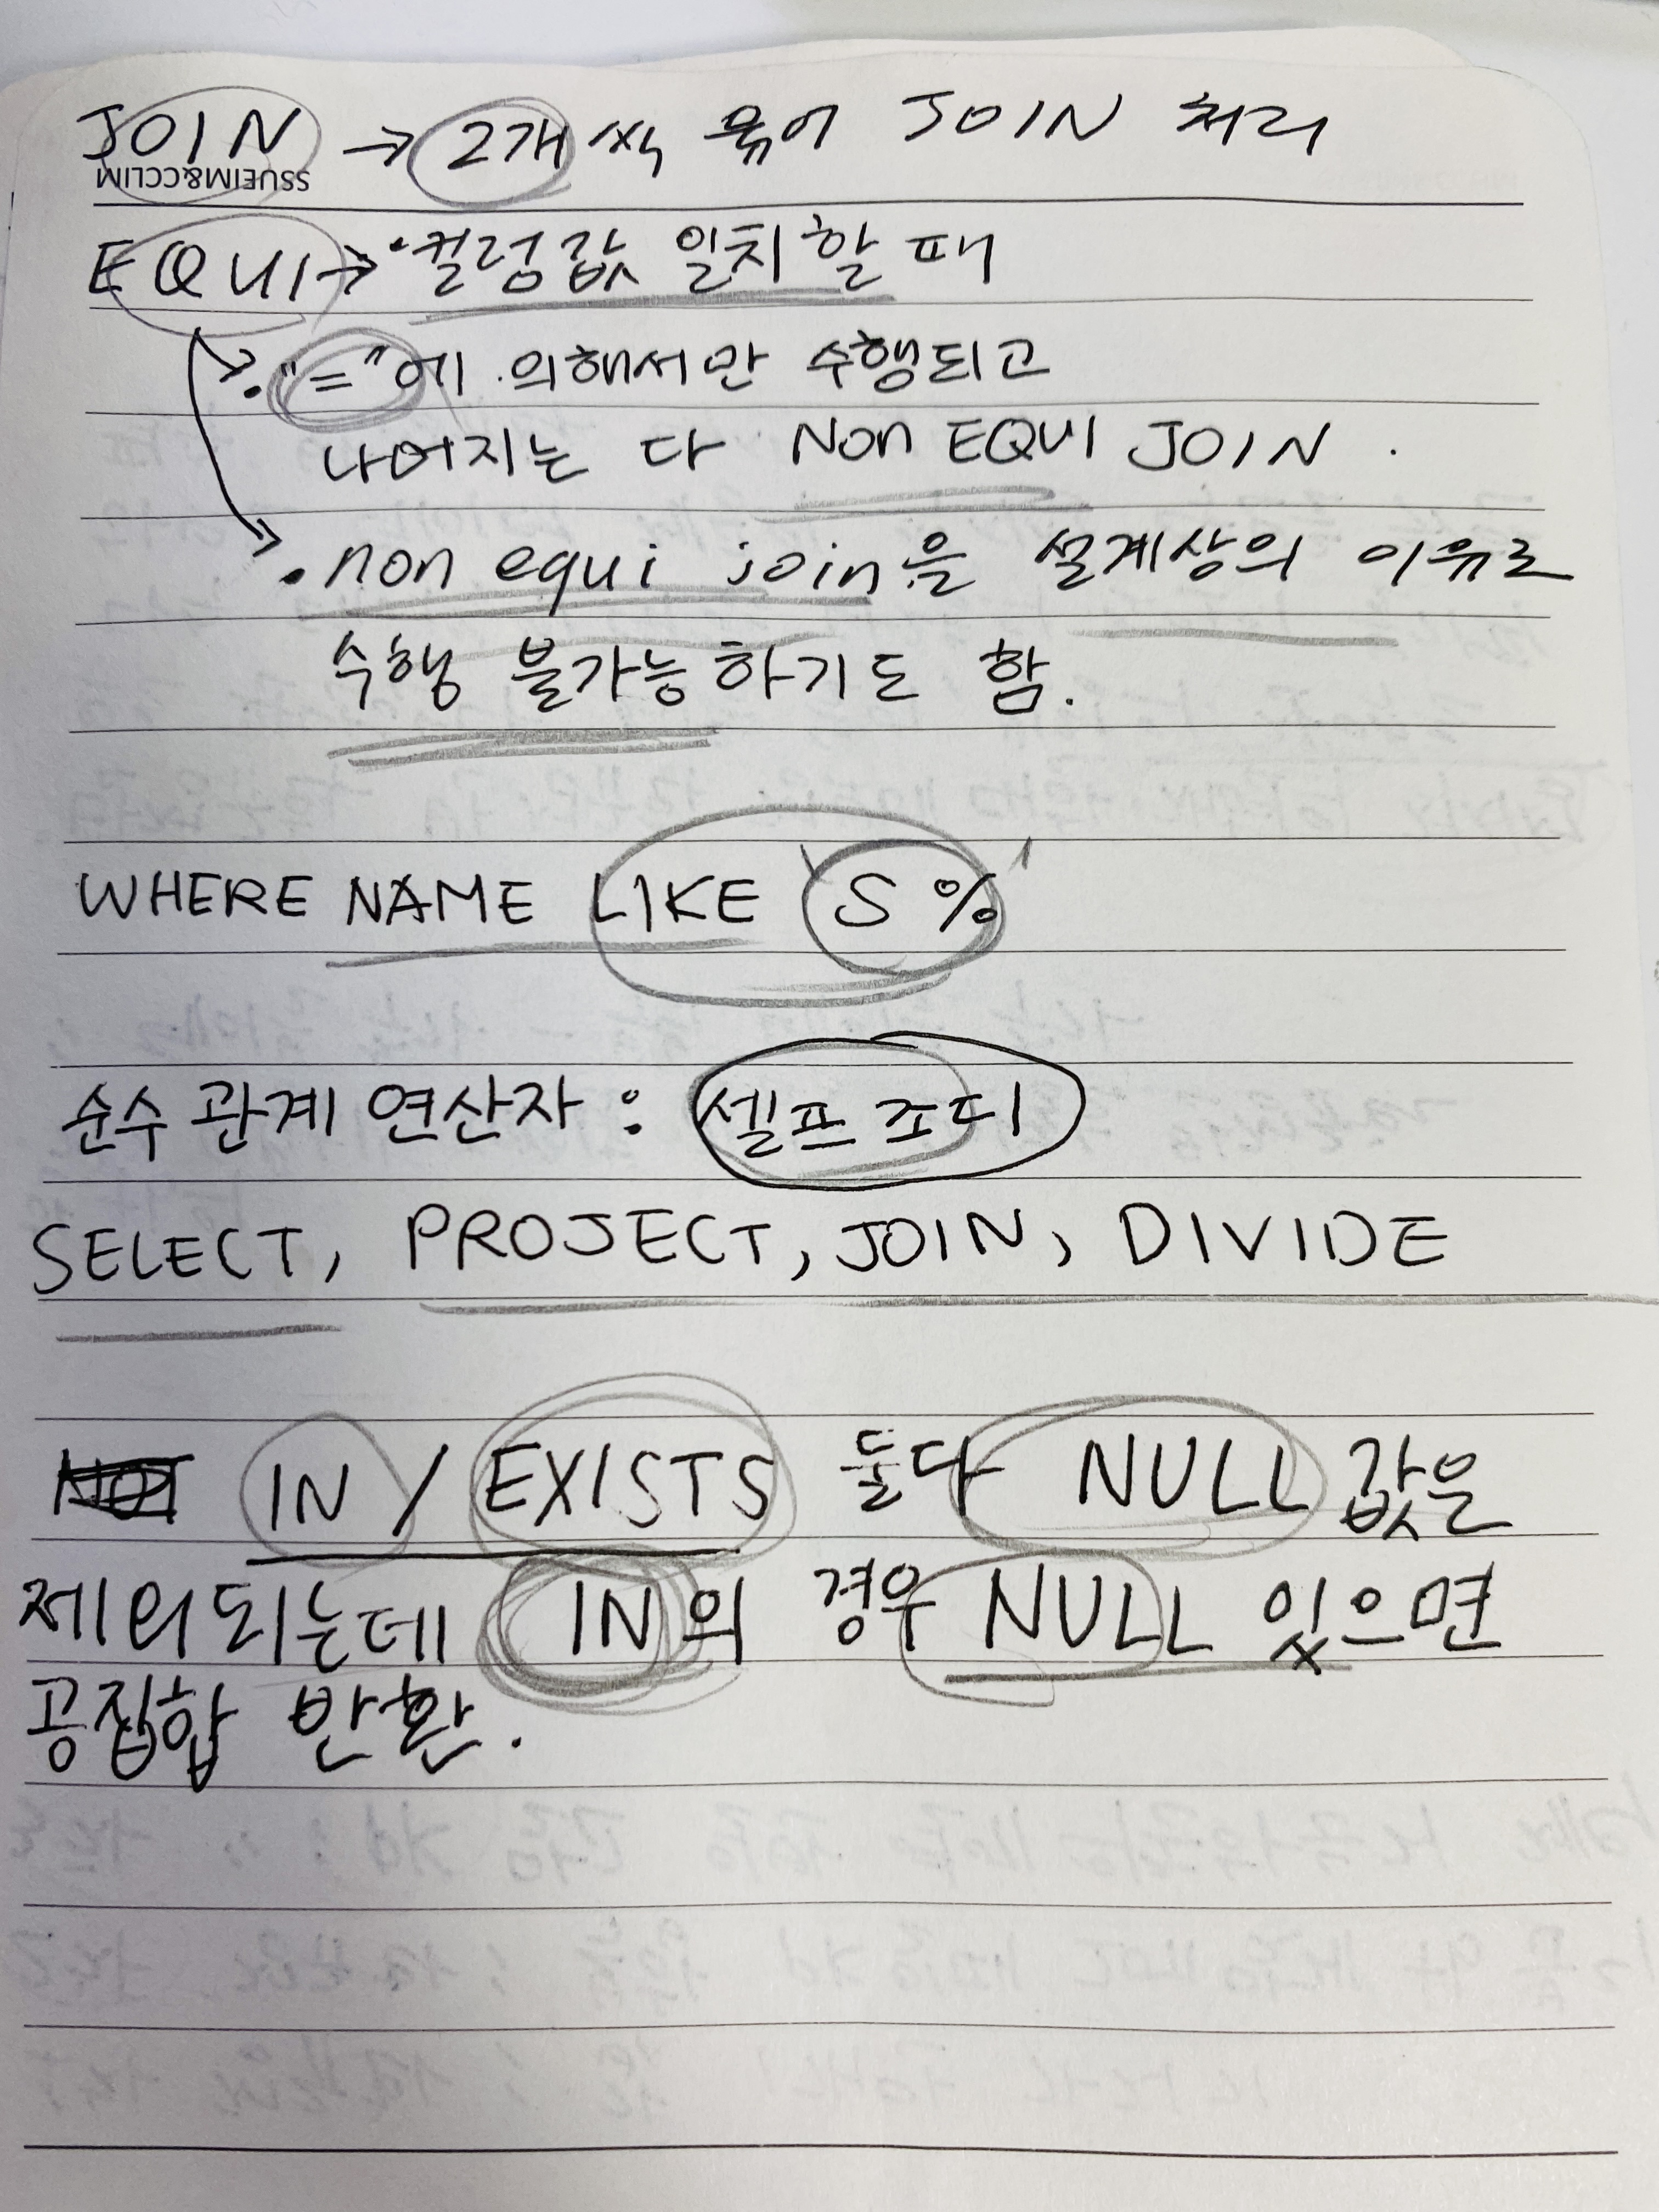 JOIN → 2개씩 묶어 JOIN 처리
SSUEIM&CCLIM
EQUI → · 컬럼값 일치할 때
· "="에 의해서만 수행되고
나머지는 다 Non EQUI JOIN.
· non equi join은 설계상의 이유로
수행 불가능하기도 함.
WHERE NAME LIKE 'S%'
순수 관계 연산자 : 셀프조디
SELECT, PROJECT, JOIN, DIVIDE
IN / EXISTS 둘다 NULL 값은
제외되는데 IN의 경우 NULL 있으면
공집합 반환.